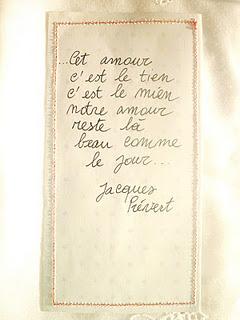 ...Cet amour
c'est le tien
c'est le mien
notre amour
reste là
beau comme
le jour...
Jacques
Prévert